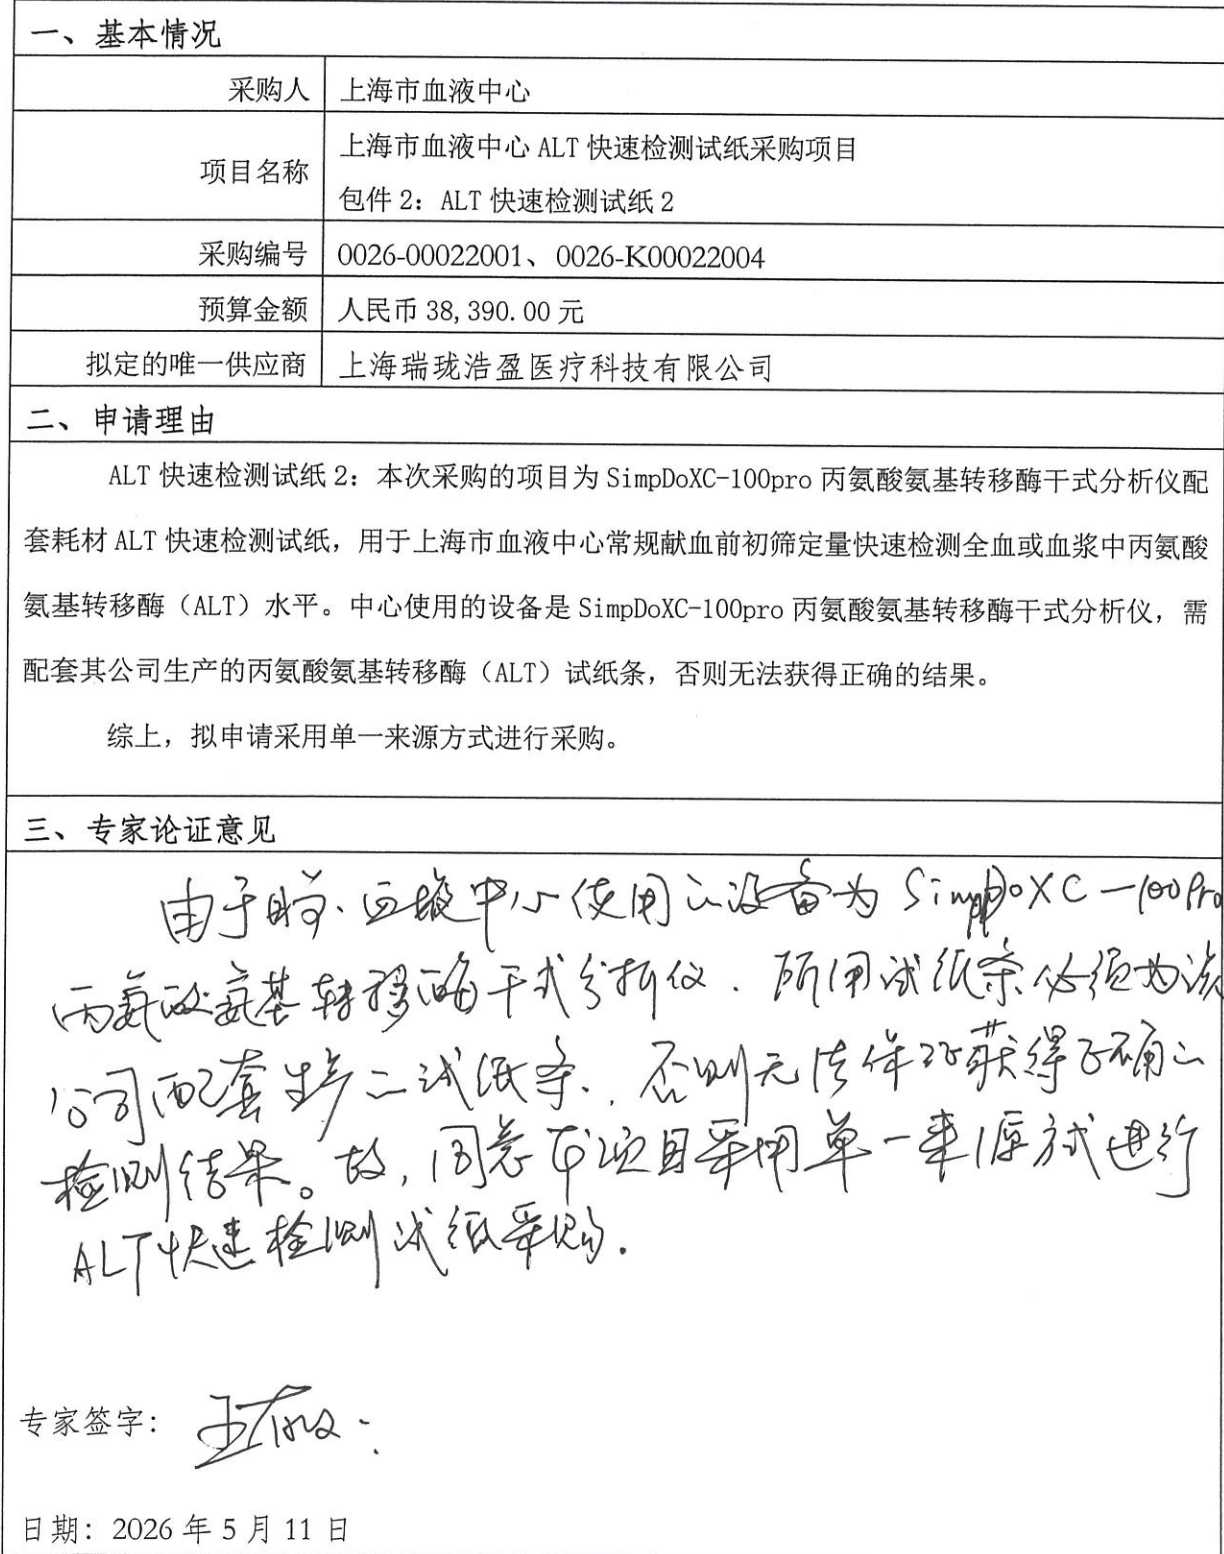 一、基本情况
采购人 上海市血液中心
项目名称 上海市血液中心 ALT 快速检测试纸采购项目
包件 2：ALT 快速检测试纸 2
采购编号 0026-00022001、0026-K00022004
预算金额 人民币 38,390.00 元
拟定的唯一供应商 上海瑞珑浩盈医疗科技有限公司
二、申请理由
ALT 快速检测试纸 2：本次采购的项目为 SimpDoXC-100pro 丙氨酸氨基转移酶干式分析仪配
套耗材 ALT 快速检测试纸，用于上海市血液中心常规献血前初筛定量快速检测全血或血浆中丙氨酸
氨基转移酶（ALT）水平。中心使用的设备是 SimpDoXC-100pro 丙氨酸氨基转移酶干式分析仪，需
配套其公司生产的丙氨酸氨基转移酶（ALT）试纸条，否则无法获得正确的结果。
综上，拟申请采用单一来源方式进行采购。
三、专家论证意见
由于目前、血液中心使用的设备为 SimpDoXC-100Pro
丙氨酸氨基转移酶干式分析仪．所用试纸条必须为该
公司配套生产的试纸条．否则无法保证获得正确的
检测结果。故，同意本项目采用单一来源方式进行
ALT快速检测试纸采购．
专家签字：
日期：2026 年 5 月 11 日